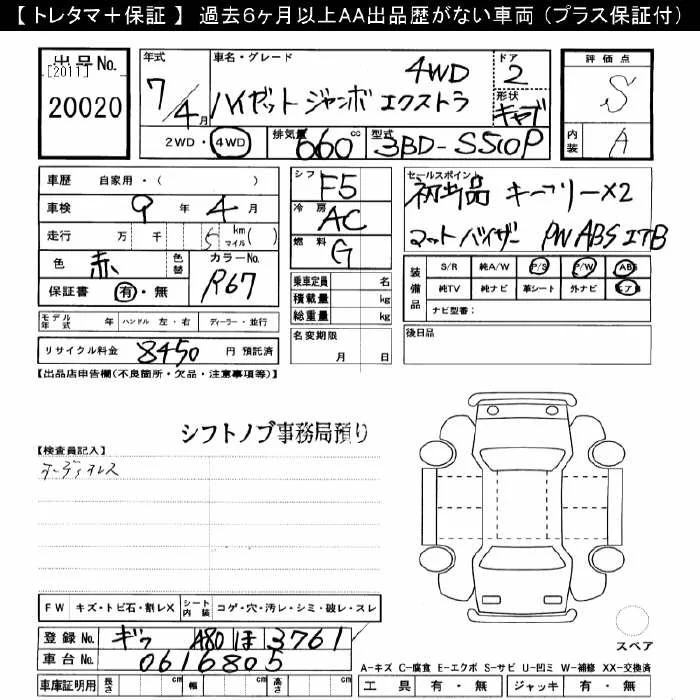 【 トレタマ＋保証 】 過去6ヶ月以上AA出品歴がない車両（プラス保証付）
出品No. [2011] 20020
年式 7/4月
車名・グレード 4WD ハイゼット ジャンボ エクストラ
ドア 2
形状 キャブ
評価点 S
内装 A
2WD・4WD
排気量 660 cc
型式 3BD-S510P
車歴 自家用・( )
車検 9 年 4 月
走行 万 千 5 km マイル( )
色 赤 色替 カラーNo. R67
保証書 有・無
シフト F5
冷房 AC
燃料 G
セールスポイント
初出品 キーフリー×2
マット バイザー PW ABS エアB
乗車定員 名
積載量 kg
総重量 kg
装備品 S/R 純A/W P/S P/W ABS
純TV 純ナビ 革シート 外ナビ エアB
ナビ型番：
モデル年式 年 ハンドル 左・右 ディーラー・並行
名変期限 月 日
後日品
リサイクル料金 8450 円 預託済
【出品店申告欄(不良箇所・欠品・注意事項等)】
シフトノブ事務局預り
【検査員記入】
オーディオレス
FW キズ・トビ石・割レX シート内装 コゲ・穴・汚レ・シミ・破レ・スレ
登録No. ギフ 480 ほ 3761
車台No. 0616805
スペア
A-キズ C-腐食 E-エクボ S-サビ U-凹ミ W-補修 XX-交換済
車庫証明用 長さ cm 幅 cm 高さ cm
工具 有・無 ジャッキ 有・無